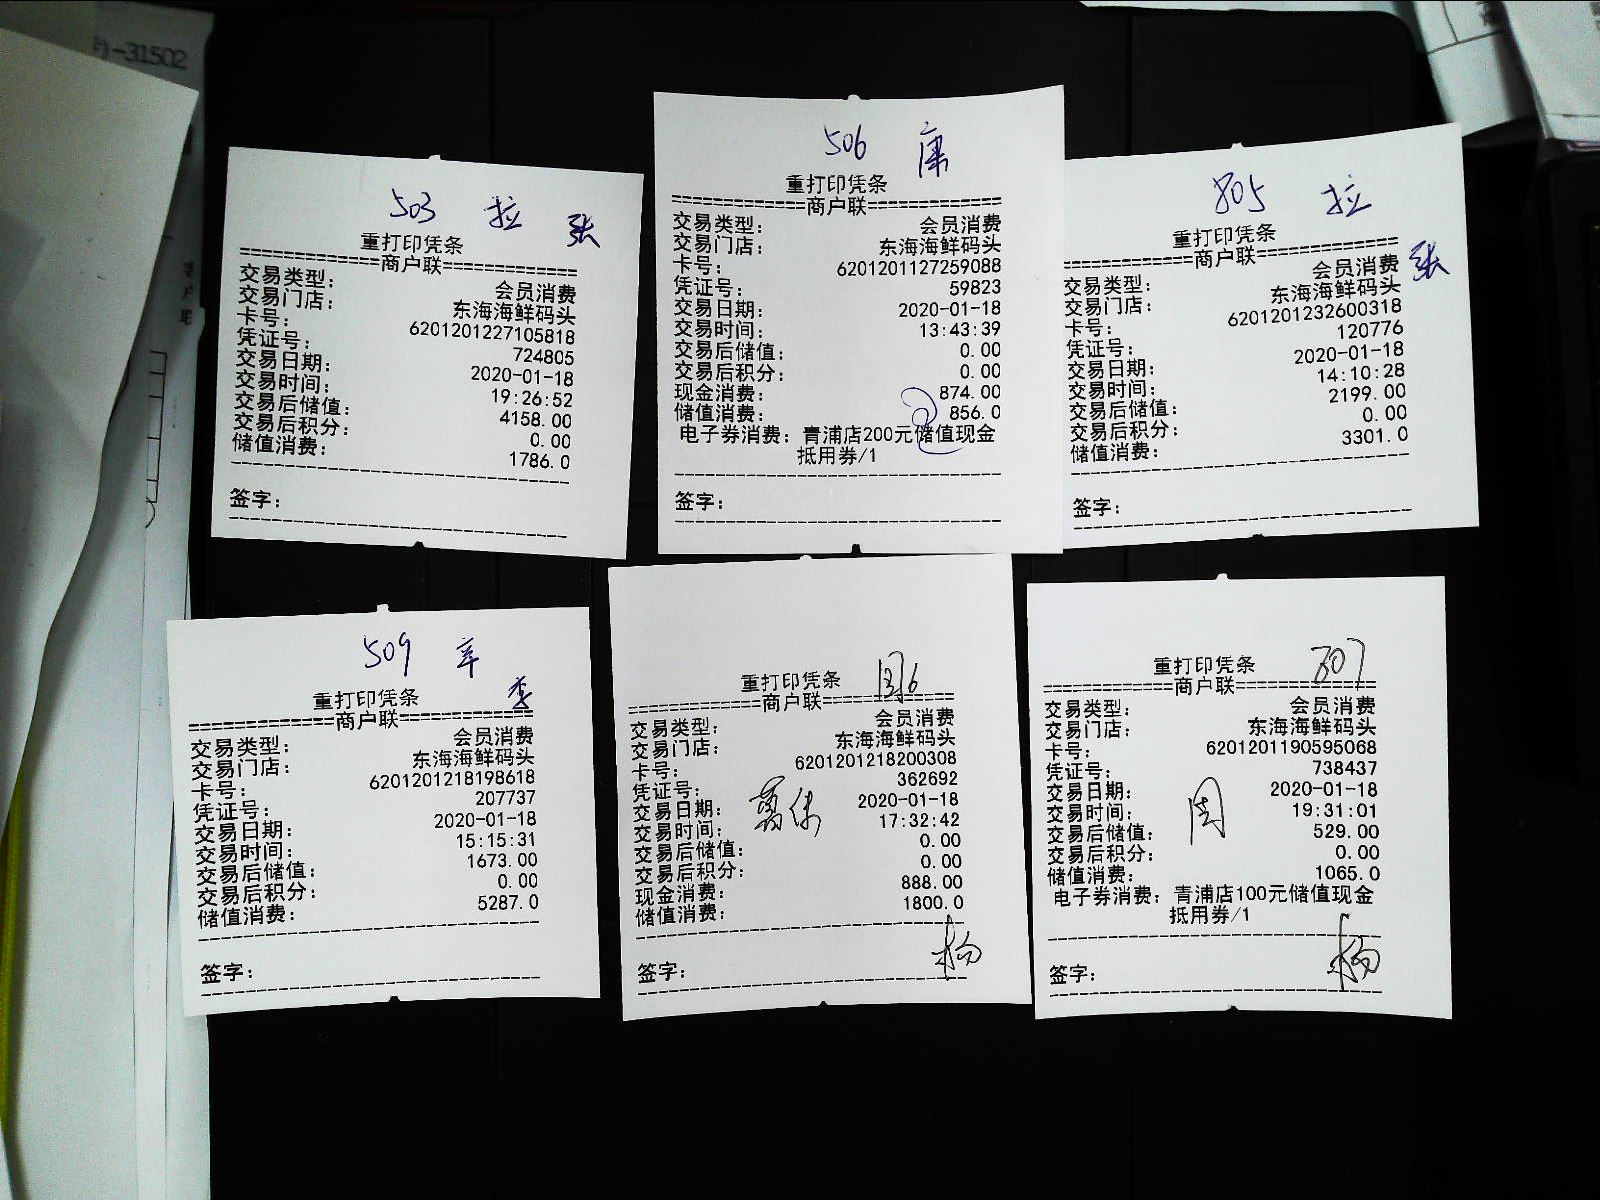 -31502
503 拉 张
重打印凭条
============商户联============
交易类型: 会员消费
交易门店: 东海海鲜码头
卡号: 6201201227105818
凭证号: 724805
交易日期: 2020-01-18
交易时间: 19:26:52
交易后储值: 4158.00
交易后积分: 0.00
储值消费: 1786.0
签字:
506 康
重打印凭条
============商户联============
交易类型: 会员消费
交易门店: 东海海鲜码头
卡号: 6201201127259088
凭证号: 59823
交易日期: 2020-01-18
交易时间: 13:43:39
交易后储值: 0.00
交易后积分: 0.00
现金消费: 874.00
储值消费: 856.0
电子券消费: 青浦店200元储值现金
抵用券/1
签字:
805 拉
张
重打印凭条
============商户联============
交易类型: 会员消费
交易门店: 东海海鲜码头
卡号: 6201201232600318
凭证号: 120776
交易日期: 2020-01-18
交易时间: 14:10:28
交易后储值: 2199.00
交易后积分: 0.00
储值消费: 3301.0
签字:
509 辛
李
重打印凭条
============商户联============
交易类型: 会员消费
交易门店: 东海海鲜码头
卡号: 6201201218198618
凭证号: 207737
交易日期: 2020-01-18
交易时间: 15:15:31
交易后储值: 1673.00
交易后积分: 0.00
储值消费: 5287.0
签字:
重打印凭条
============商户联============
交易类型: 会员消费
交易门店: 东海海鲜码头
卡号: 6201201218200308
凭证号: 362692
交易日期: 2020-01-18
交易时间: 17:32:42
交易后储值: 0.00
交易后积分: 0.00
现金消费: 888.00
储值消费: 1800.0
签字: 杨
重打印凭条 807
============商户联============
交易类型: 会员消费
交易门店: 东海海鲜码头
卡号: 6201201190595068
凭证号: 738437
交易日期: 2020-01-18
交易时间: 19:31:01
周
交易后储值: 529.00
交易后积分: 0.00
储值消费: 1065.0
电子券消费: 青浦店100元储值现金
抵用券/1
签字: 杨